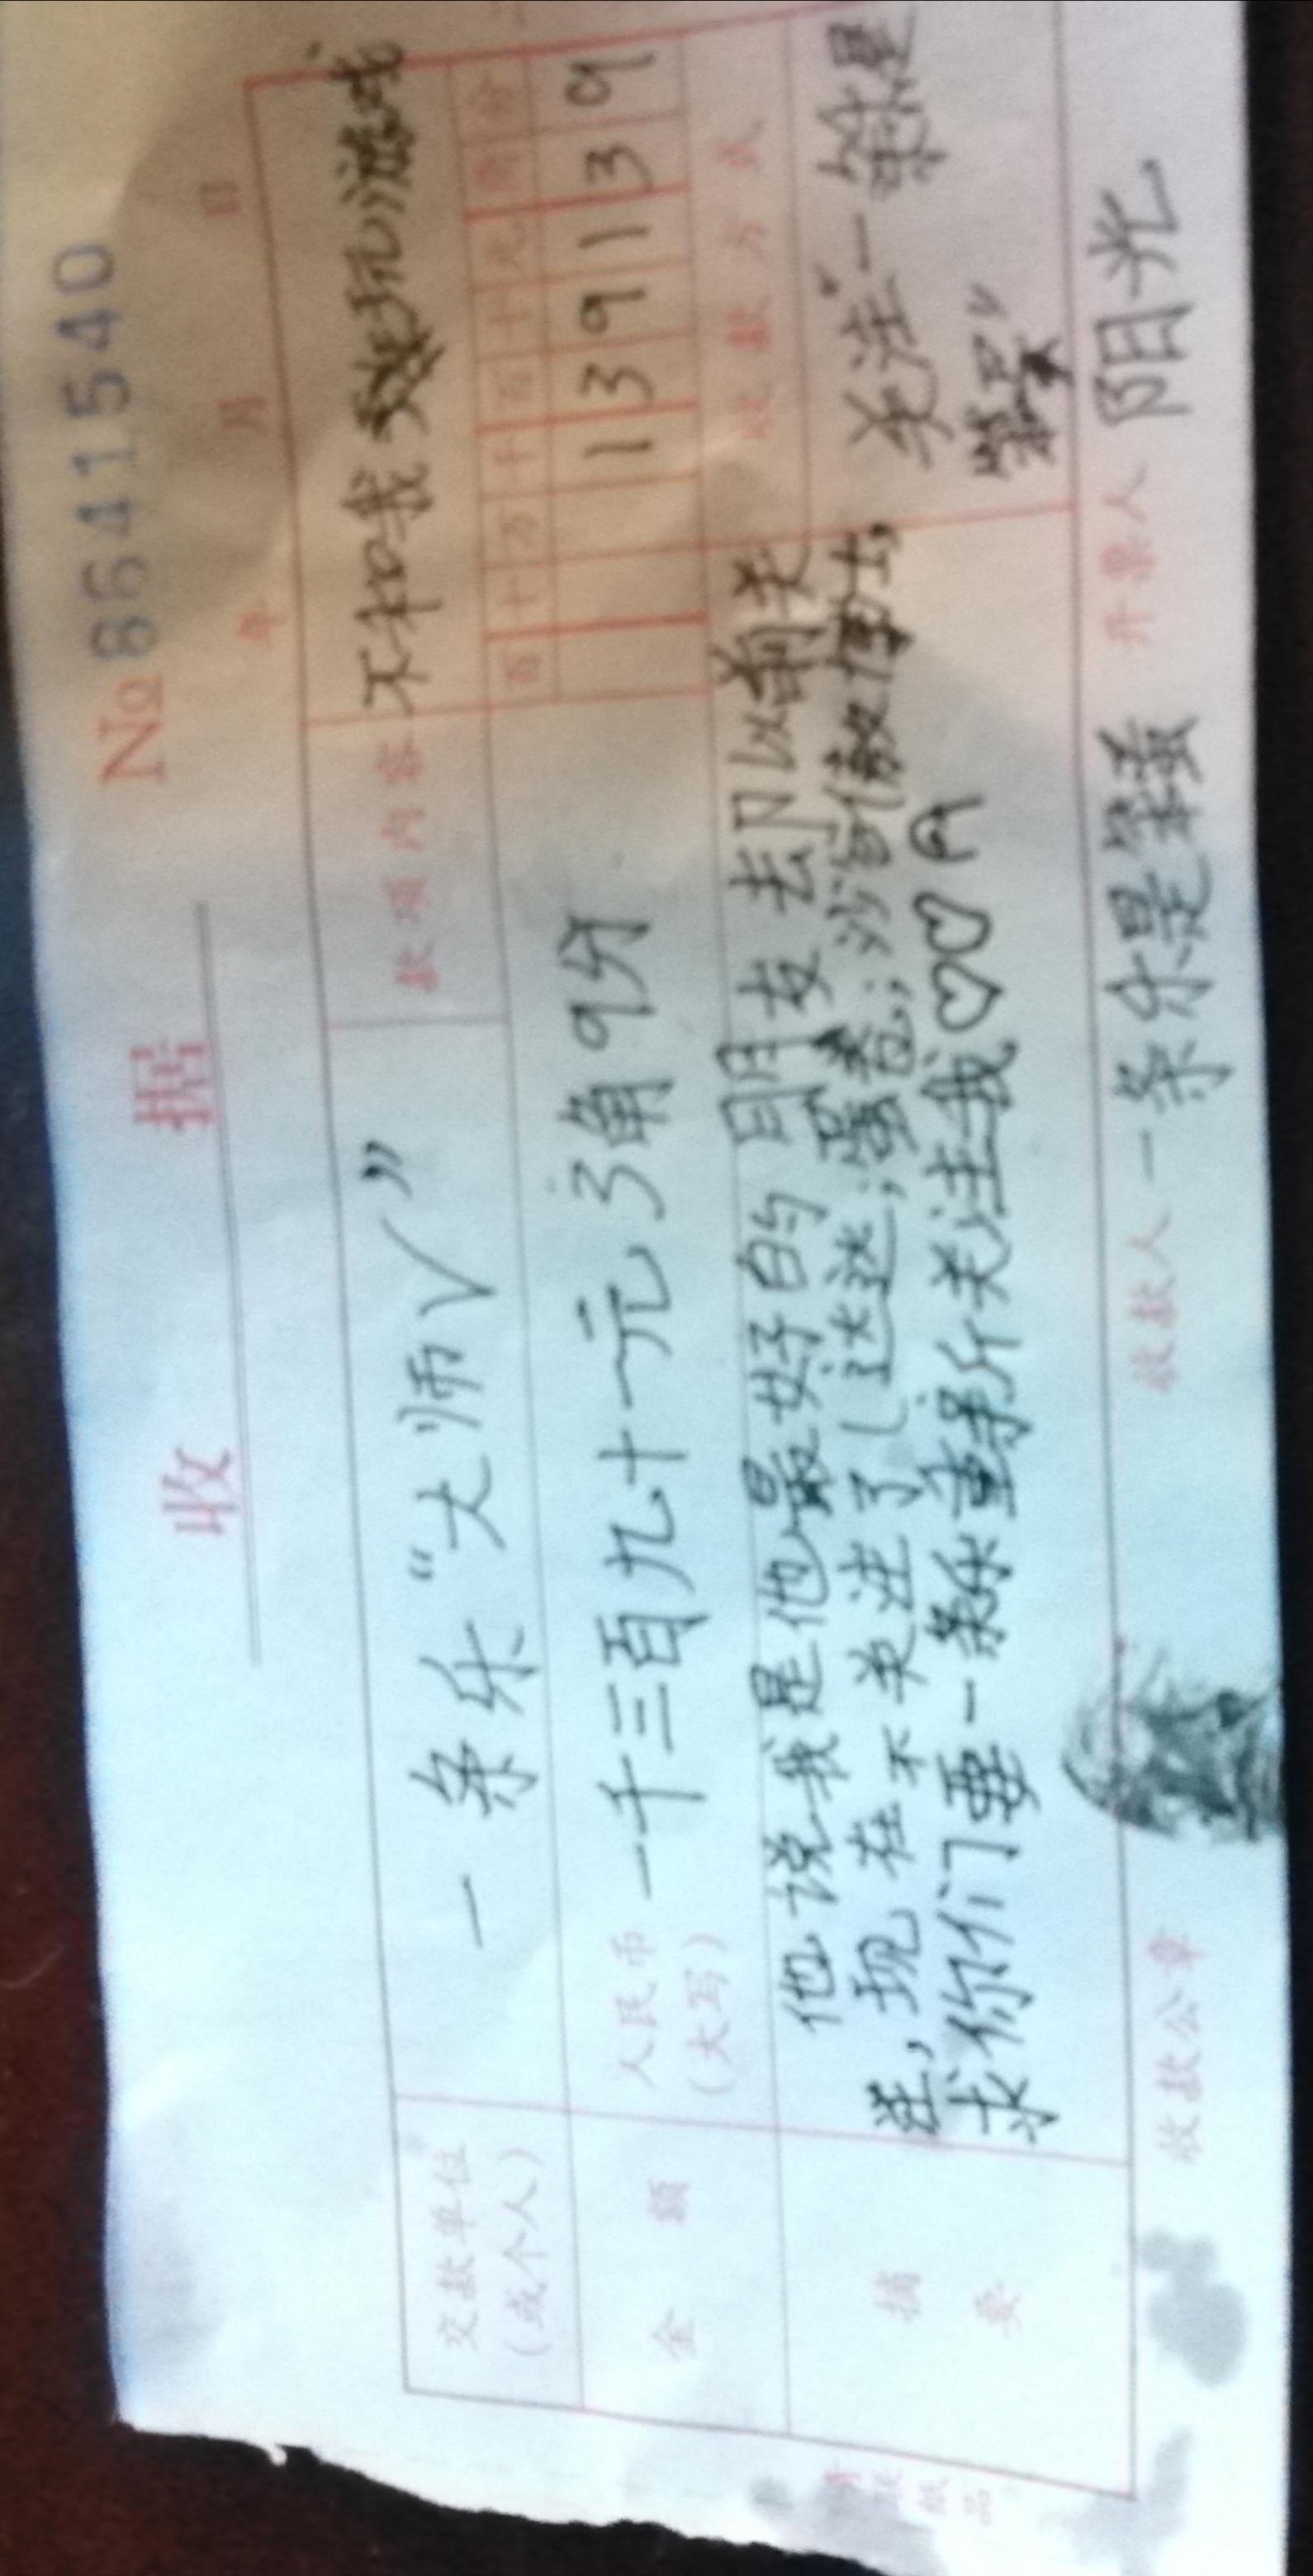 收 据
No 86641540
年 月 日
交款单位
(或个人)
一条乐“大师√”
款项内容
不和我玩游戏
金额
人民币
(大写)
一千三百九十一元3角9分
百 十 万 千 百 十 元 角 分
1 3 9 1 3 9
摘要
他说我是他最好的朋友 去 以前关
注,现在不关注了
求你们要一条乐重新关注我♡♡
收款方式
关注“一条乐是
”
收款公章
收款人
一条乐是
开票人
阳光